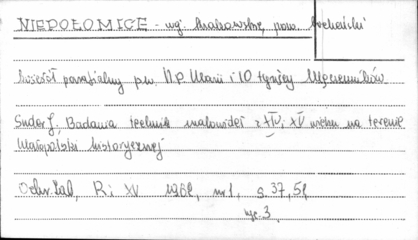 NIEPOŁOMICE - wj. krakowskie, pow. bocheński
kościół parafialny p.w. N.P. Marii i 10 tysięcy Męczenników
Sudor J. Badania technik malowideł z XIV i XV wieku na terenie
Małopolski historycznej
Ochr. Zab, R. XV 1962, nr 1, s. 37, 51
ryc. 3